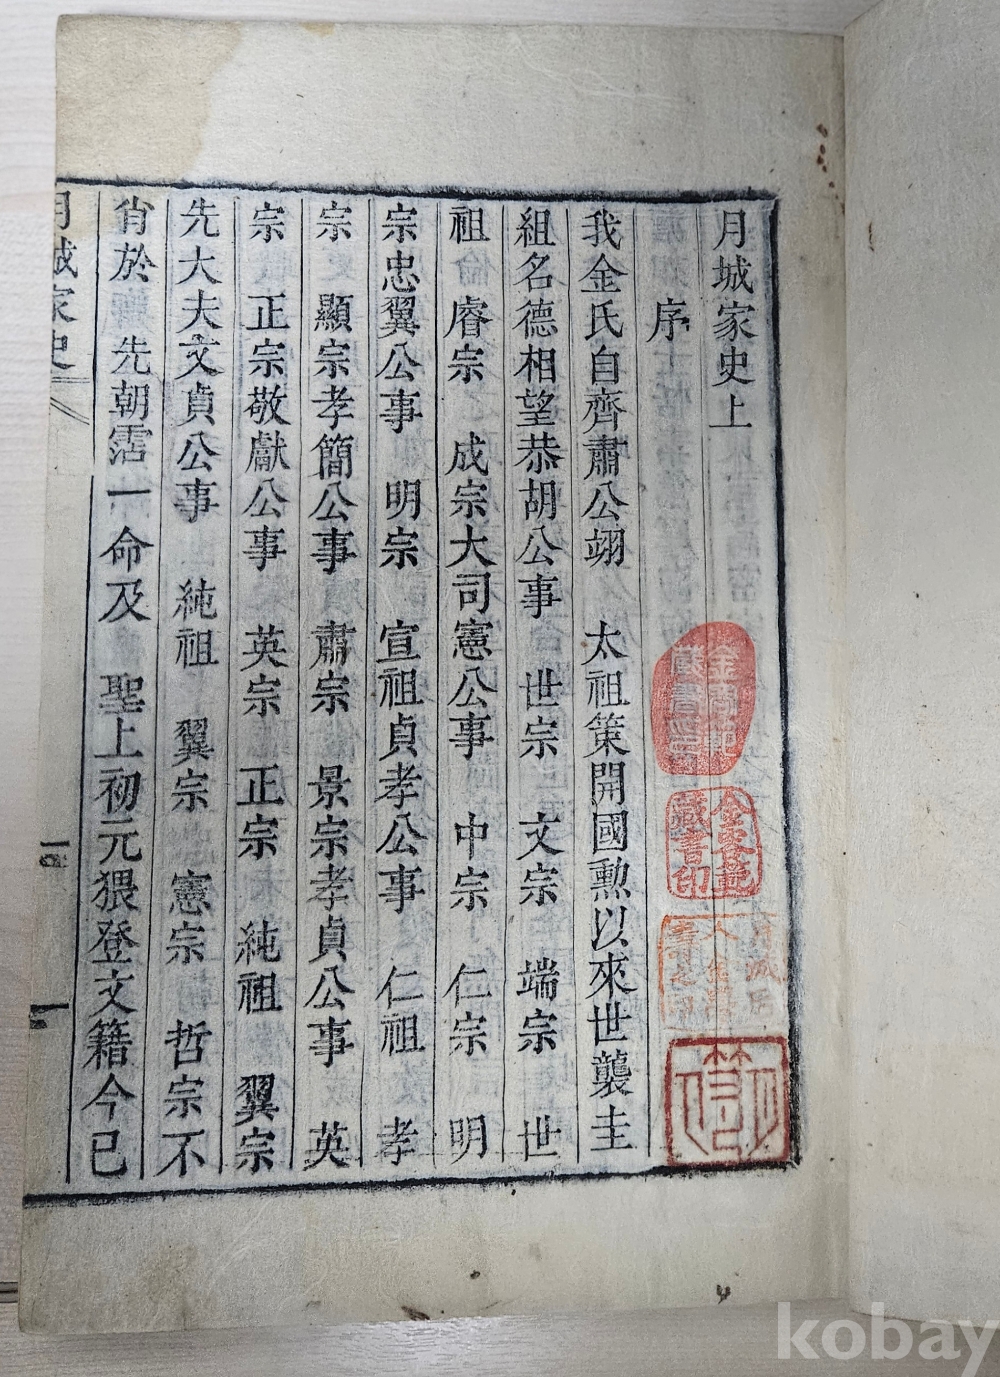 月城家史上
序
我金氏自齊肅公翊　太祖策開國勲以來世襲圭
組名德相望恭胡公事　世宗　文宗　端宗　世
祖　睿宗　成宗大司憲公事　中宗　仁宗　明
宗忠翼公事　明宗　宣祖貞孝公事　仁祖　孝
宗　顯宗孝簡公事　肅宗　景宗孝貞公事　英
宗　正宗敬獻公事　英宗　正宗　純祖　翼宗
先大夫文貞公事　純祖　翼宗　憲宗　哲宗不
肖於　先朝霑一命及　聖上初元猥登文籍今已
月城家史
藏書印
kobay